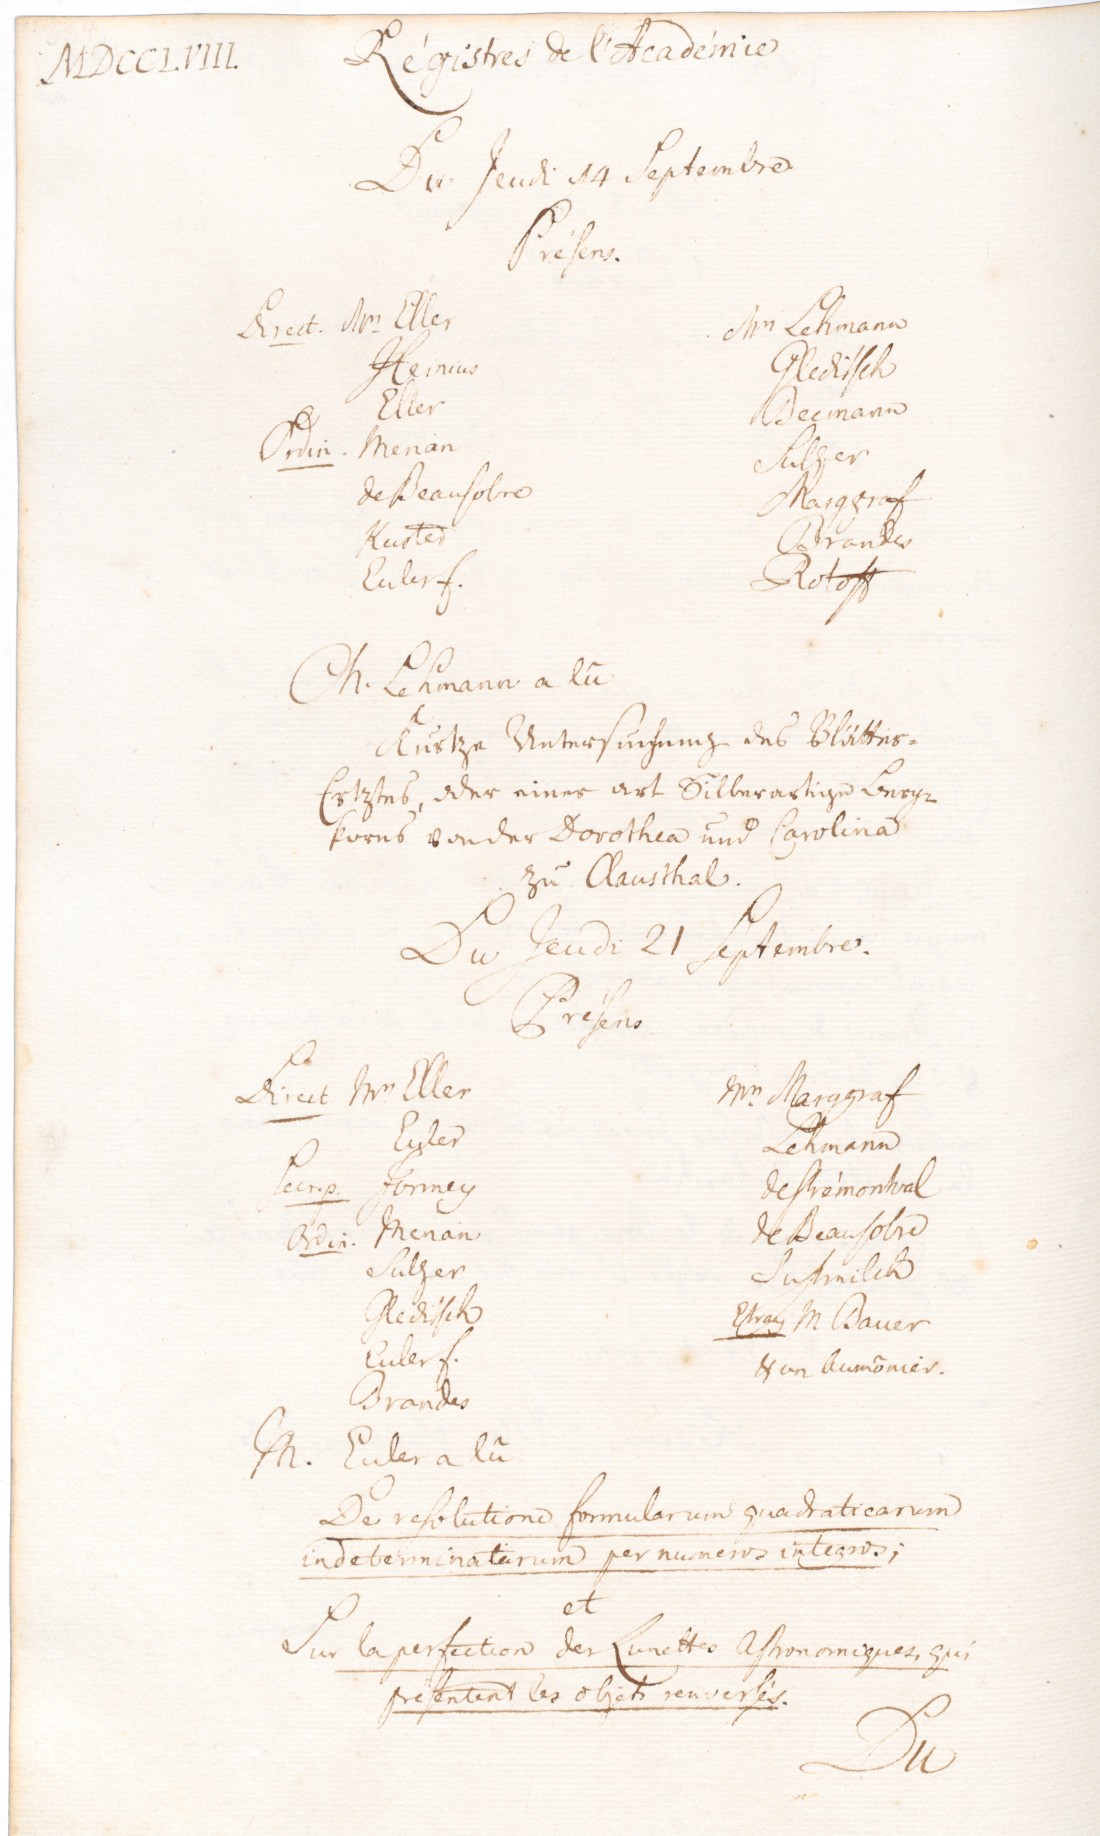 MDCCLVIII.
Régistres de l'Académie
Du Jeudi 14 Septembre
Présens.
Direct. Mrs Eller
Heinius
Eller
Ordin. Merian
de Beausobre
Kuster
Euler f.
Mrs Lehmann
Gleditsch
Becmann
Sulzer
Marggraf
Brandes
Roloff
M. Lehmann a lu
Kurtze Untersuchung des Blätter-
Ertztes, oder einer art Silberartigen Berg-
korns von der Dorothea und Carolina
zu Clausthal.
Du Jeudi 21 Septembre.
Présens
Direct Mrs Eller
Euler
Secr. p. Formey
Ordin. Merian
Sulzer
Gleditsch
Euler f.
Brandes
Mrs Marggraf
Lehmann
de Prémontval
de Beausobre
Susmilch
Etrang M Bauer
& un Aumônier.
M. Euler a lu
De resolutione formularum quadraticarum
indeterminatarum per numeros integros;
et
Sur la perfection des Lunettes Astronomiques, qui
présentent les objets renversés.
Du